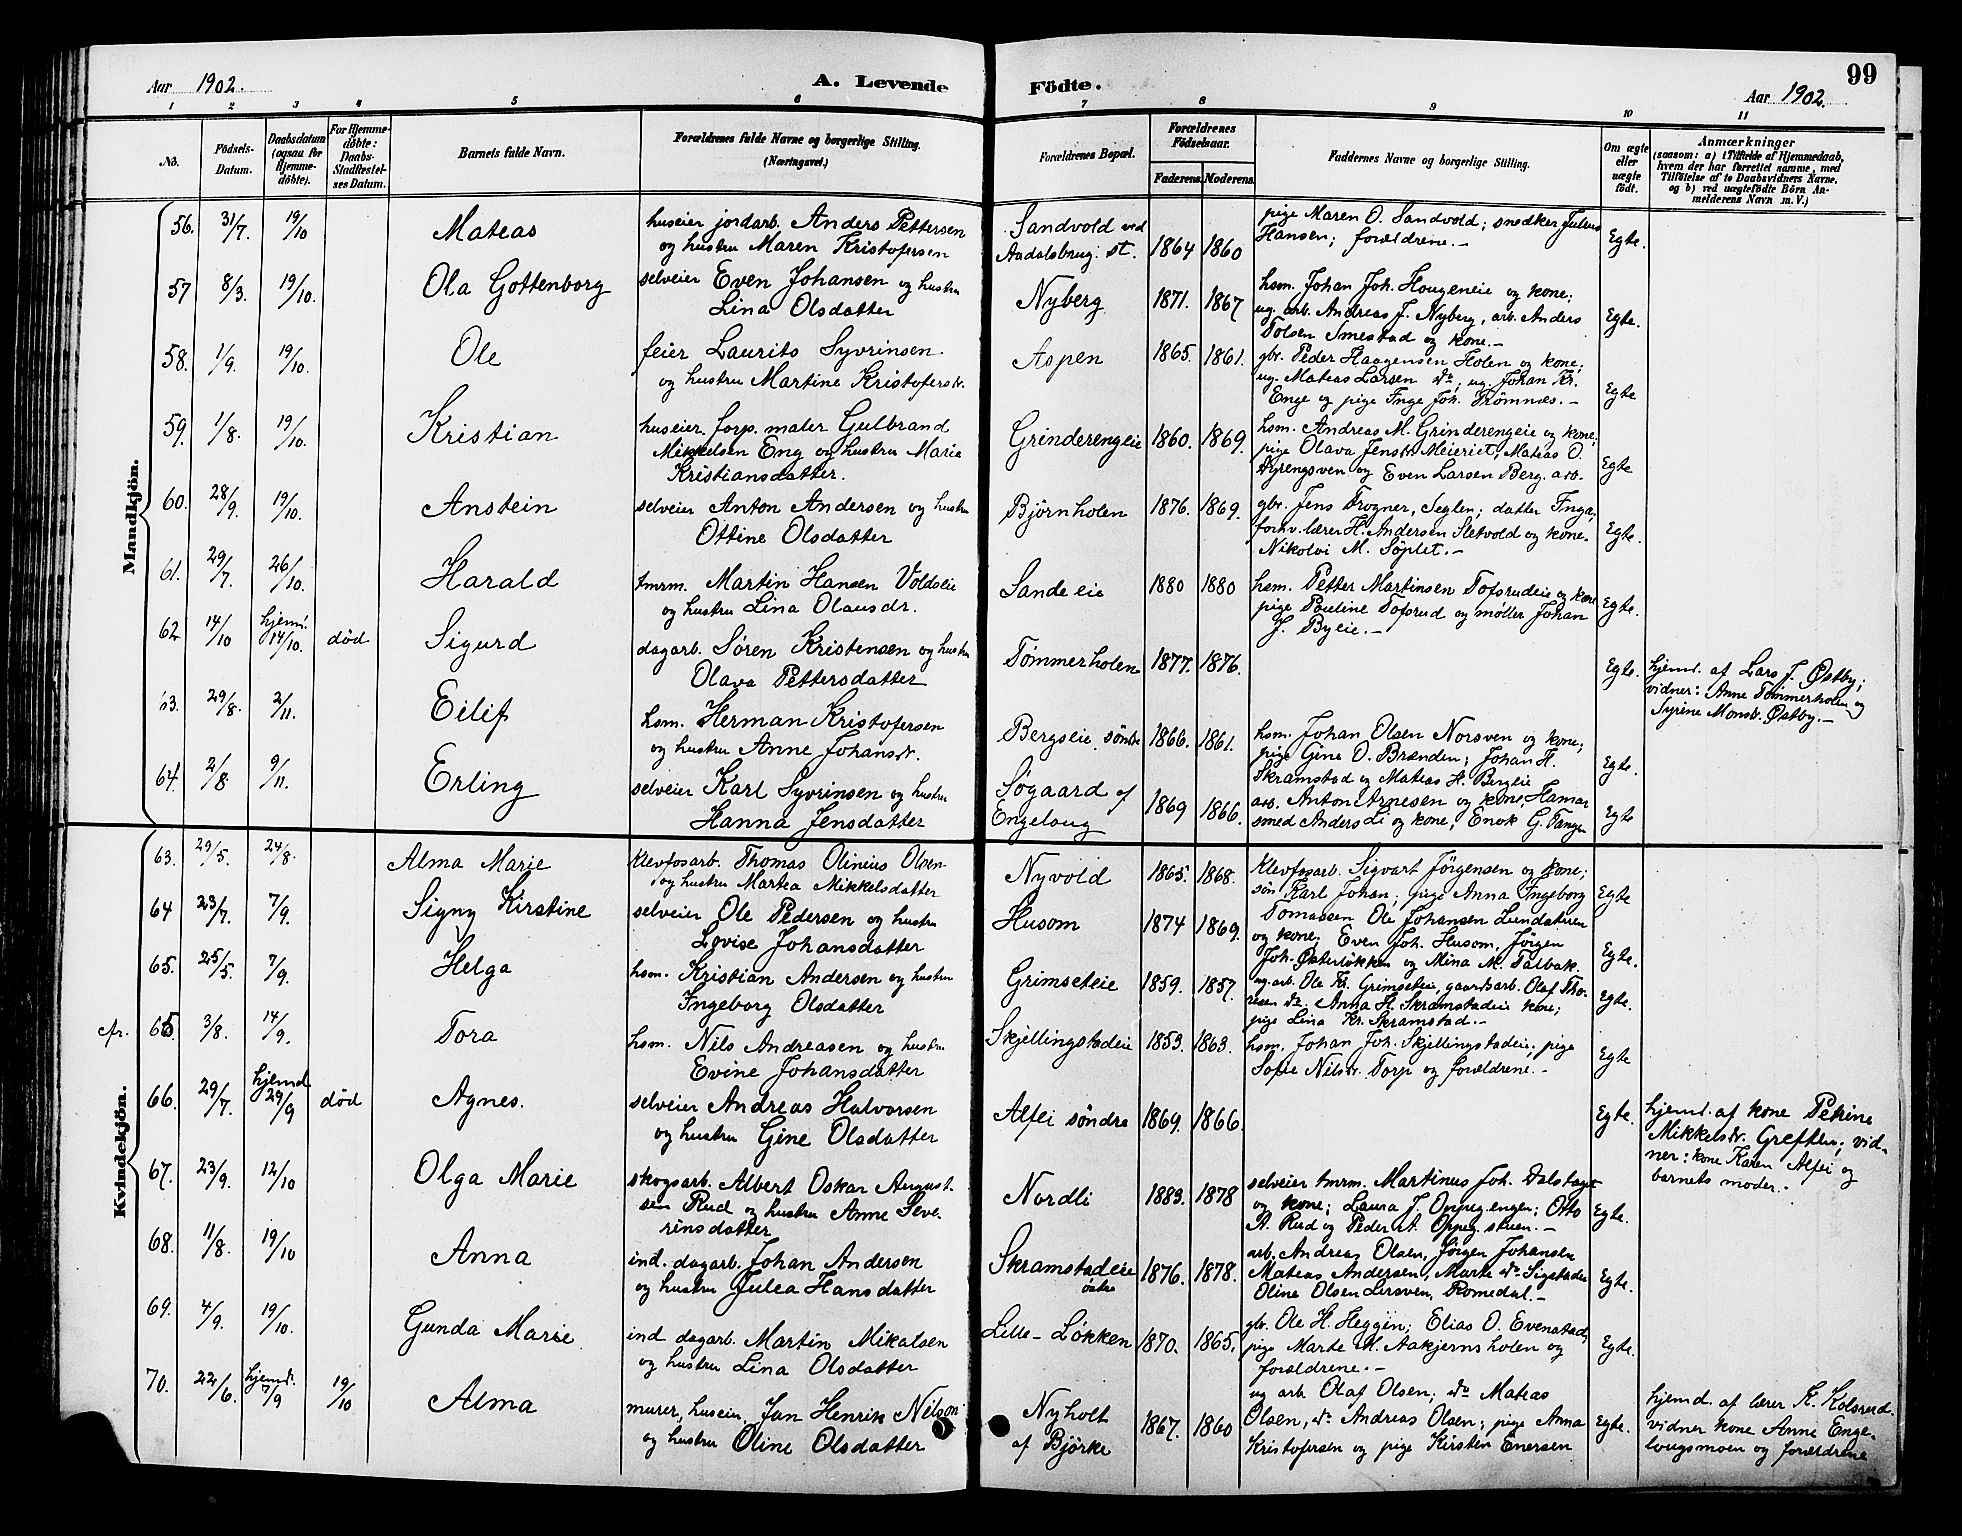 Aar 1902.
A. Levende Födte.
Aar 1902.
99
1 2 3 4 5 6 7 8 9 10 11
No.
Födsels-Datum.
Daabsdatum (ogsaa for Hjemme-döbte).
For Hjemme-döbte: Daabs-Stadfæstel-ses Datum.
Barnets fulde Navn.
Forældrenes fulde Navne og borgerlige Stilling. (Næringsvei.)
Forældrenes Bopæl.
Forældrenes Födselsaar.
Faderens. Moderens.
Faddernes Navne og borgerlige Stilling.
Om ægte eller uægte födt.
Anmærkninger
(saasom: a) i Tilfælde af Hjemmedaab,
hvem der har forrettet samme, med
Tilföielse af to Daabsvidners Navne,
og b) ved uægtefödte Börn An-
melderens Navn m. V.)
Mandkjön.
56. 31/7. 19/10 Mateas
huseier jordarb. Anders Pettersen
og hustru Maren Kristofersen
Sandvold ved
Aadalsbrug. st. 1864 1860
pige Maren O. Sandvold; snedker Julius
Hansen; forældrene.-
Egte.
57 8/3. 19/10. Ola Gottenborg
selveier Even Johansen og hustru
Lina Olsdatter
Nyberg 1871. 1867
hsm. Johan Joh. Hougeneie og kone;
ug. arb. Andreas J. Nyberg, arb. Anders
Tolsen Smestad og kone.-
Egte.
58. 1/9. 19/10. Ole
feier Laurits Syvrinsen
og hustru Martine Kristofersdr.
Aspen 1865. 1861.
gbr. Peder Haagensen Holen og kone;
ug. Mateas Larsen do; ug. Johan Kr.
Enge og pige Inge Joh. Trömnæs.-
Egte
59. 1/8. 19/10. Kristian
huseier, forp. maler Gulbrand
Mikkelsen Eng og hustru Maria
Kristiansdatter.
Grinderengeie 1860. 1869.
hsm. Andreas M. Grinderengeie og kone;
pige Olava Jensdr. Meieriet, Mateas O.
Dyrengsven og Even Larsen Berg. arb.
Egte
60. 28/9. 19/10. Anstein
selveier Anton Andersen og hustru
Ottine Olsdatter
Bjørnholen 1876. 1869.
gbr. Jens Frogner, Seglen; datter Inga,
forhv. lærer H. Andersen Sletvold og kone.
Nikolvi M. Søplet.-
Egte.
61. 29/7. 26/10. Harald
tmrm. Martin Hansen Voldseie
og hustru Lina Olausdr.
Sandeeie 1880 1880
hsm. Petter Martinsen Tofsrudeie og kone
pige Pauline Tofsrud og møller Johan
J. Byeie.-
Egte.
62 14/10 hjemd. 14/10. død Sigurd
dagarb. Søren Kristensen og hustru
Olava Pettersdatter
Tømmerholen 1877. 1876.
Egte.
hjemd. af Lars J. Østby;
vidner: Anne Tømmerholen og
Syrine Monsdr. Østby.-
63. 29/8. 2/11. Eilif
hsm. Herman Kristofersen
og hustru Anne Johansdr.
Bergseie søndre 1866. 1861.
hsm. Johan Olsen Norsven og kone;
pige Gine O. Brænden; Johan H.
Skramstad og Mateas H. Bergeie
Egte.
64. 2/8. 9/11. Erling
selveier Karl Syvrinsen og hustru
Hanna Jensdatter
Søgaard af
Engelaug 1869 1866.
arb. Anton Arnesen og kone, Hamar
smed Anders Li og kone; Enok G. Tangen
Egte
Kvindekjön.
63. 29/5. 24/8. Alma Marie
Klevfosarb. Thomas Olinius Olsen
og hustru Martea Mikkelsdatter
Nyvold 1865. 1868.
Klevfosarb. Sigvart Jørgensen og kone;
søn Karl Johan; pige Anna Ingeborg
Tomassen
Egte
64 23/7. 7/9. Signy Kirstine
selveier Ole Pedersen og hustru
Lovise Johansdatter
Husom 1874 1869.
Ole Johansen Lundstuen
og kone; Even Joh. Husom, Jørgen
Joh. Østerløkken og Mina M. Talbak.
Egte.
65. 25/5. 7/9. Helga
hsm. Kristian Andersen og hustru
Ingeborg Olsdatter
Grimseteie 1859. 1857.
ug. arb. Ole Kr. Grimseteie, gaardsarb. Olaf Tho-
resen do. Anna H. Skramstadeie kone;
pige Lina Kr. Skramstad.-
Egte.
65. 3/8. 14/9. Tora
hsm. Nils Andreasen og hustru
Evine Johansdatter
Skjellingstadeie 1853. 1863.
hsm. Johan Joh. Skjellingstadeie, pige
Sofie Nilsdr. Torp og forældrene.-
Egte
66. 29/7. hjemd. 29/9 død Agnes.
selveier Andreas Halvorsen
og hustru Gine Olsdatter
Alfei søndre 1869. 1866.
Egte.
hjemd. af kone Petrine
Mikkelsdr. Greftlen; vid-
ner: kone Karen Alfei og
barnets moder.-
67. 23/9. 12/10 Olga Marie
skogsarb. Albert Oskar August-
sen Rud og hustru Anne Seve-
rinsdatter
Nordli 1883. 1878
selveier tmrm. Martinus Joh. Dalstuga
og kone; Laura J. Oppeg.engen; Otto
A. Rud og Peder A. Oppeg.stuen.-
Egte.
68. 11/8. 19/10 Anna
ind. dagarb. Johan Andersen
og hustru Julea Hansdatter
Skramstadeie
østre 1876. 1878.
arb. Andreas Olsen, Jørgen Johansen
Mateas Andersen, Marte do Sigstadeie
Oline Olsen Lersven, Romedal.-
Egte.
69. 4/9. 19/10. Gunda Marie
ind dagarb. Martin Mikalsen
og hustru Lina Olsdatter
Lille-Løkken 1870. 1865.
gbr. Ole H. Heggin; Elias O. Evenstad,
pige Marte M. Aakjernsholen og
forældrene.-
Egte.
70. 22/6. hjemd. 7/9 19/10 Alma
murer, huseier, Jan Henrik Nilson
og hustru Oline Olsdatter
Nyholt
af Bjørke 1867. 1860
ug arb. Olaf Olsen; do Mateas
Olsen, do. Andreas Olsen; pige Anna
Kristofersen og pige Kirsten Enersen
Egte.
hjemd. af lærer K. Kolsrud.
vidner kone Anne Enge-
lougsmoen og forældrene